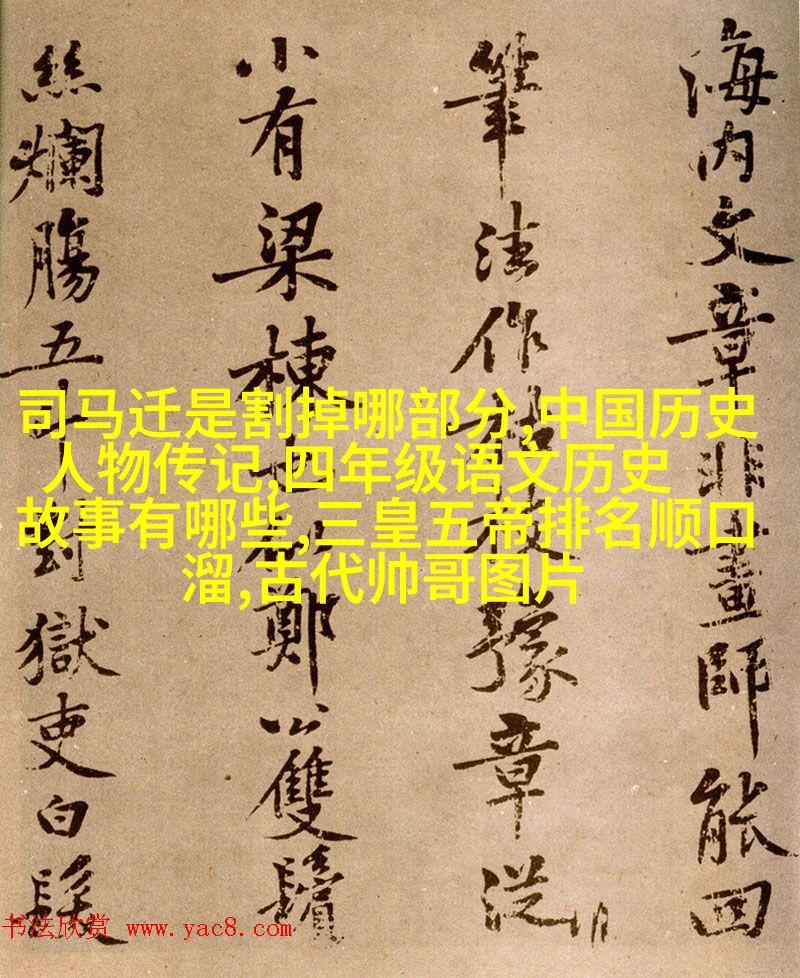 海内文章非畫師能回
筆法作枝豫章從
小有梁棟也鄭公雙鬢
絲爛腸五斗對獄吏白髮
司马迁是割掉哪部分,中国历史
人物传记,四年级语文历史
故事有哪些,三皇五帝排名顺口
溜,古代帅哥图片
书法欣赏 www.yac8.com